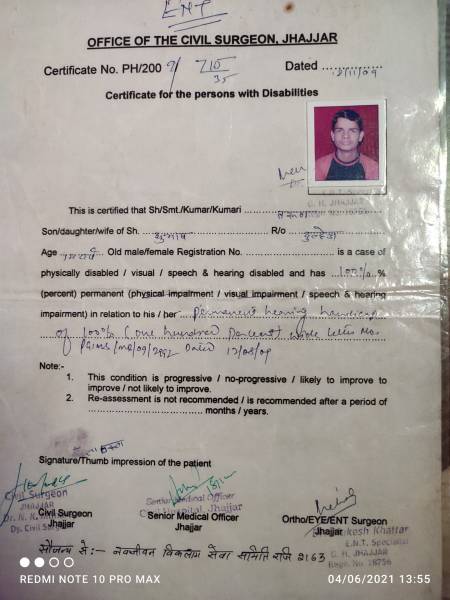 ENT
OFFICE OF THE CIVIL SURGEON, JHAJJAR
Certificate No. PH/200 9/ 710/35 Dated ............... 
Certificate for the persons with Disabilities
G. H. JHAJJAR
This is certified that Sh/Smt./Kumar/Kumari ..............
Son/daughter/wife of Sh. सुभाष R/o ..............
Age .......... Old male/female Registration No. ........................ is a case of
physically disabled / visual / speech & hearing disabled and has 100% %
(percent) permanent (physical impairment / visual impairment / speech & hearing
impairment) in relation to his / her Permanent hearing handicap
of 100% (one hundred percent) vide letter No.
Dated
Note:-
1. This condition is progressive / no-progressive / likely to improve to improve / not likely to improve.
2. Re-assessment is not recommended / is recommended after a period of ........................ months / years.
Signature/Thumb impression of the patient
Civil Surgeon
JHAJJAR
Senior Medical Officer
Civil Hospital, Jhajjar
Civil Surgeon
Jhajjar
Senior Medical Officer
Jhajjar
Ortho/EYE/ENT Surgeon
Jhajjar
Dy. Civil
Khattar
E.N.T. Specialist
G. H. JHAJJAR
Regn. No. 18756
सौजन्य से :- नवजीवन विकलांग सेवा समिति रजि 2163
REDMI NOTE 10 PRO MAX
04/06/2021 13:55